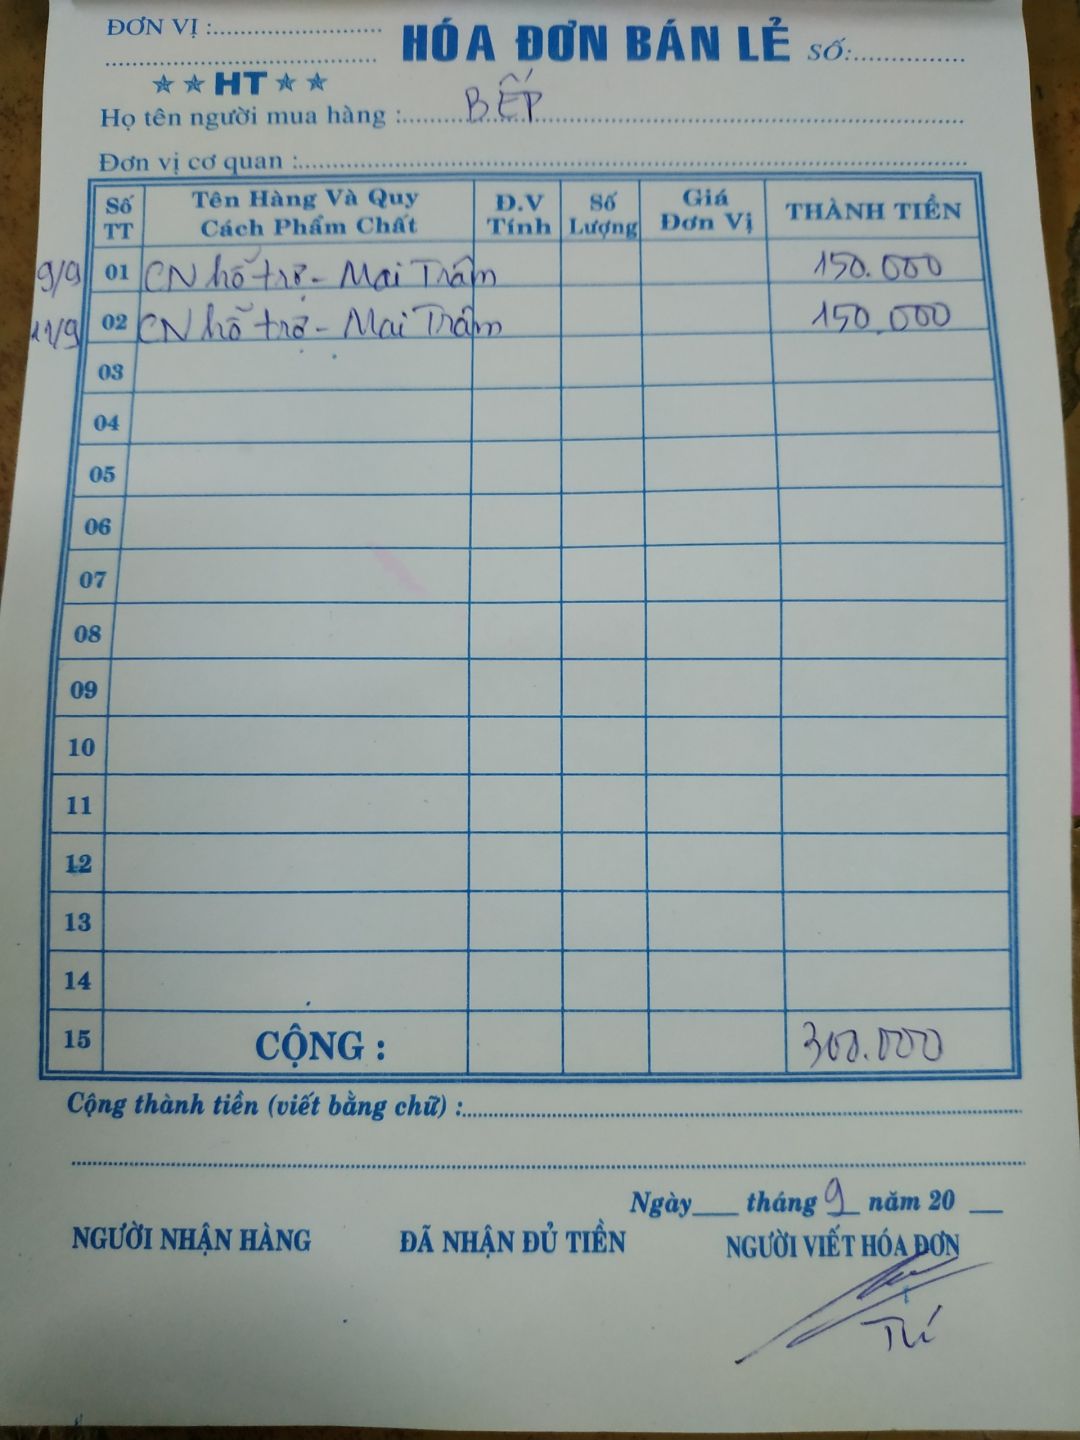 ĐƠN VỊ :
HÓA ĐƠN BÁN LẺ SỐ:
HT
Họ tên người mua hàng : BẾP
Đơn vị cơ quan :
Số TT Tên Hàng Và Quy Cách Phẩm Chất Đ.V Tính Số Lượng Giá Đơn Vị THÀNH TIỀN
9/9 01 CN hỗ trợ - Mai Trâm 150.000
11/9 02 CN hỗ trợ - Mai Trâm 150.000
03
04
05
06
07
08
09
10
11
12
13
14
15 CỘNG : 300.000
Cộng thành tiền (viết bằng chữ) :
Ngày tháng 9 năm 20
NGƯỜI NHẬN HÀNG ĐÃ NHẬN ĐỦ TIỀN NGƯỜI VIẾT HÓA ĐƠN